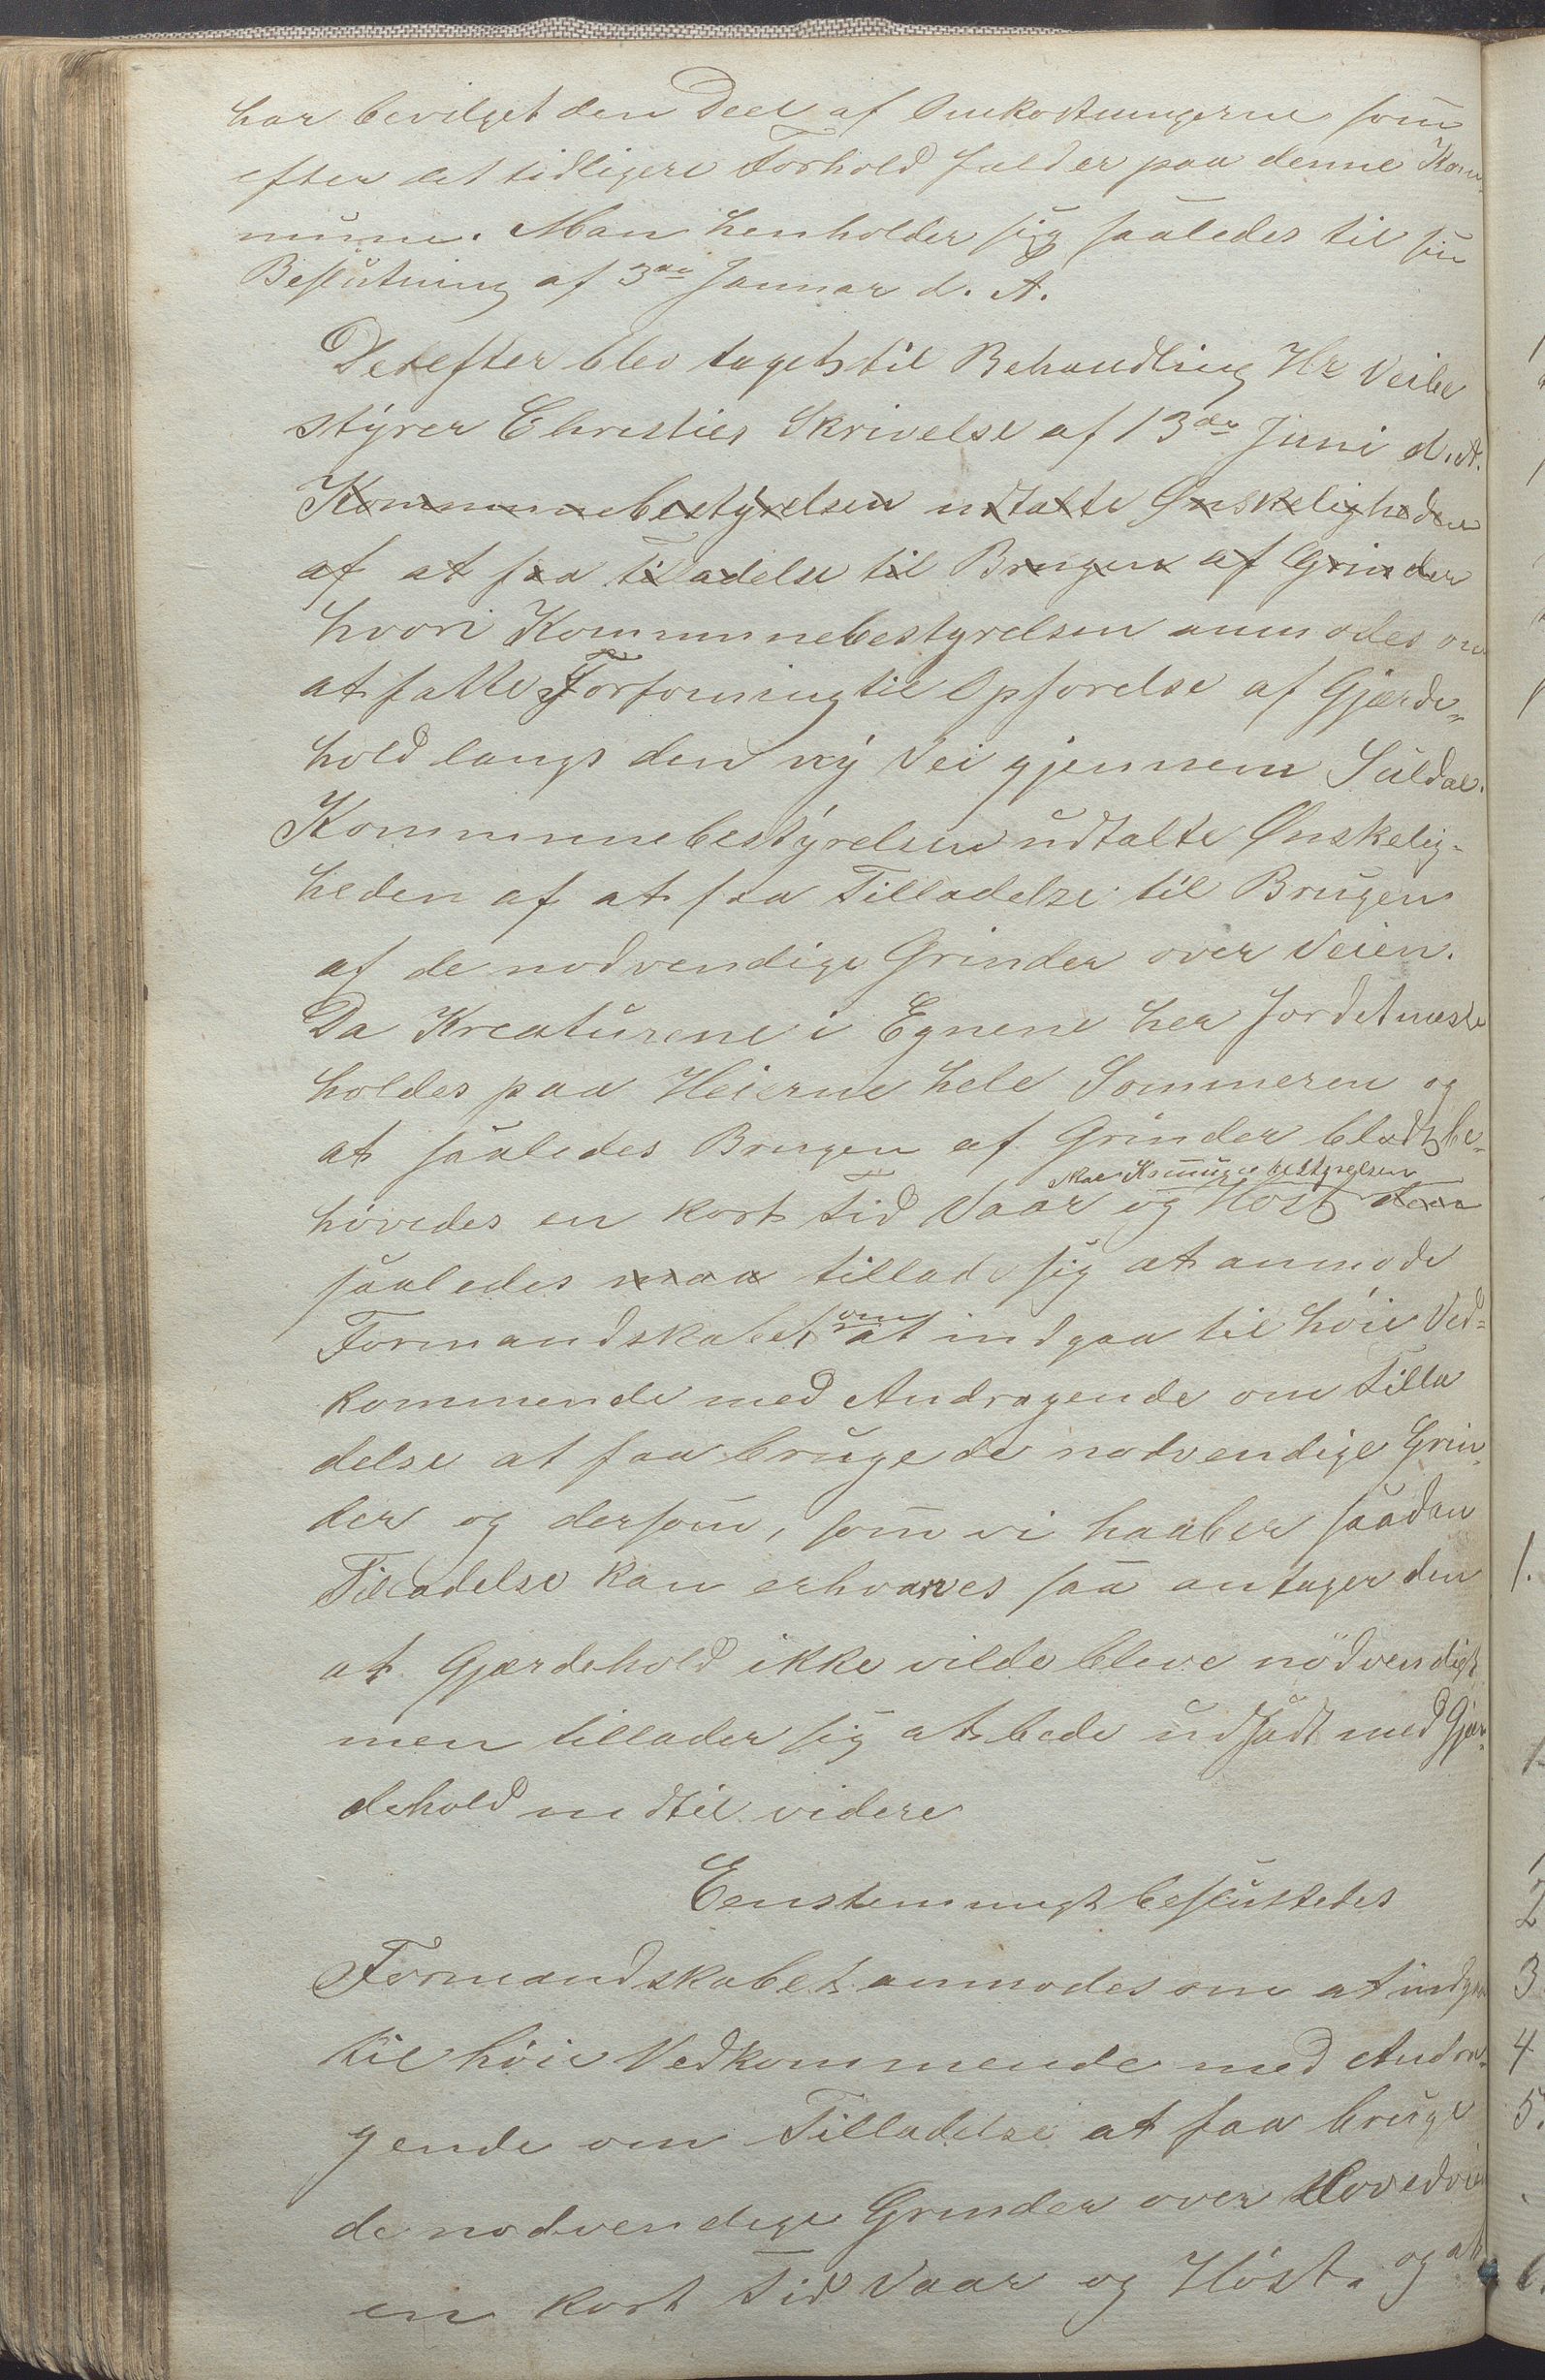 har bevilget den Deel af Omkostningerne som
efter det tidligere Forhold falder paa denne Kom-
mune. Man henholder sig saaledes til sin
Beslutning af 3die Januar d. A.
Derefter blev taget til Behandling Hr Veibe
styrer Christies Skrivelse af 13de Juni d. A.
Kommunebestyrelsen udtalte Ønskeligheden
af at faa tiladelse til Brugen af Grinder
hvori Kommunebestyrelsen anmodes om
at fatte Forføining til Opførelse af Gjærde-
hold langs den ny Vei gjennem Suldal.
Kommunebestyrelsen udtalte Ønskelig-
heden af at faa Tilladelse til Brugen
af de nødvendige Grinder over Veien.
Da Kreaturene i Egnene her for det meste
holdes paa Heierne hele Sommeren og
at saaledes Brugen af Grinder blodt be-
skal Kommunebestyrelsen
høvedes en kort Tid Vaar og Høst den
saaledes maa tillade sig at anmode
Formandskabet om at indgaa til høie Ved-
kommende med Andragende om Tilla
delse at faa bruge de nødvendige Grin-
der og dersom, som vi haaber saadan
Tilladelse kan erhverves saa antager den
at Gjærdehold ikke vilde bleve nødvendigt
men tillader sig at bede udsadt med Gjær-
dehold indtil videre
Eenstemmigt besluttedes
Formandskabet anmodes om at indgaa
til høie Vedkommende med Andra-
gende om Tilladelse at faa bruge
de nødvendige Grinder over Hovedvei
en kort Tid Vaar og Høst. og at